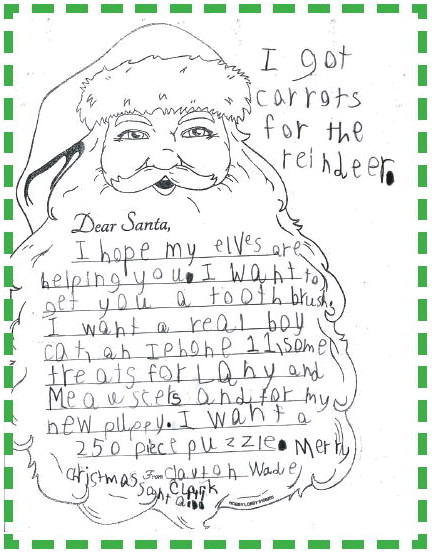 I got
carrots
for the
reindeer.
Dear Santa,
I hope my elves are
helping you. I want to
get you a toothbrush.
I want a real boy
cat, an Iphone 11, some
treats for Lany and
Meowsters and for my
new puppy. I want a
250 piece puzzle. Merry
Christmas From Clayton Wade
Clark